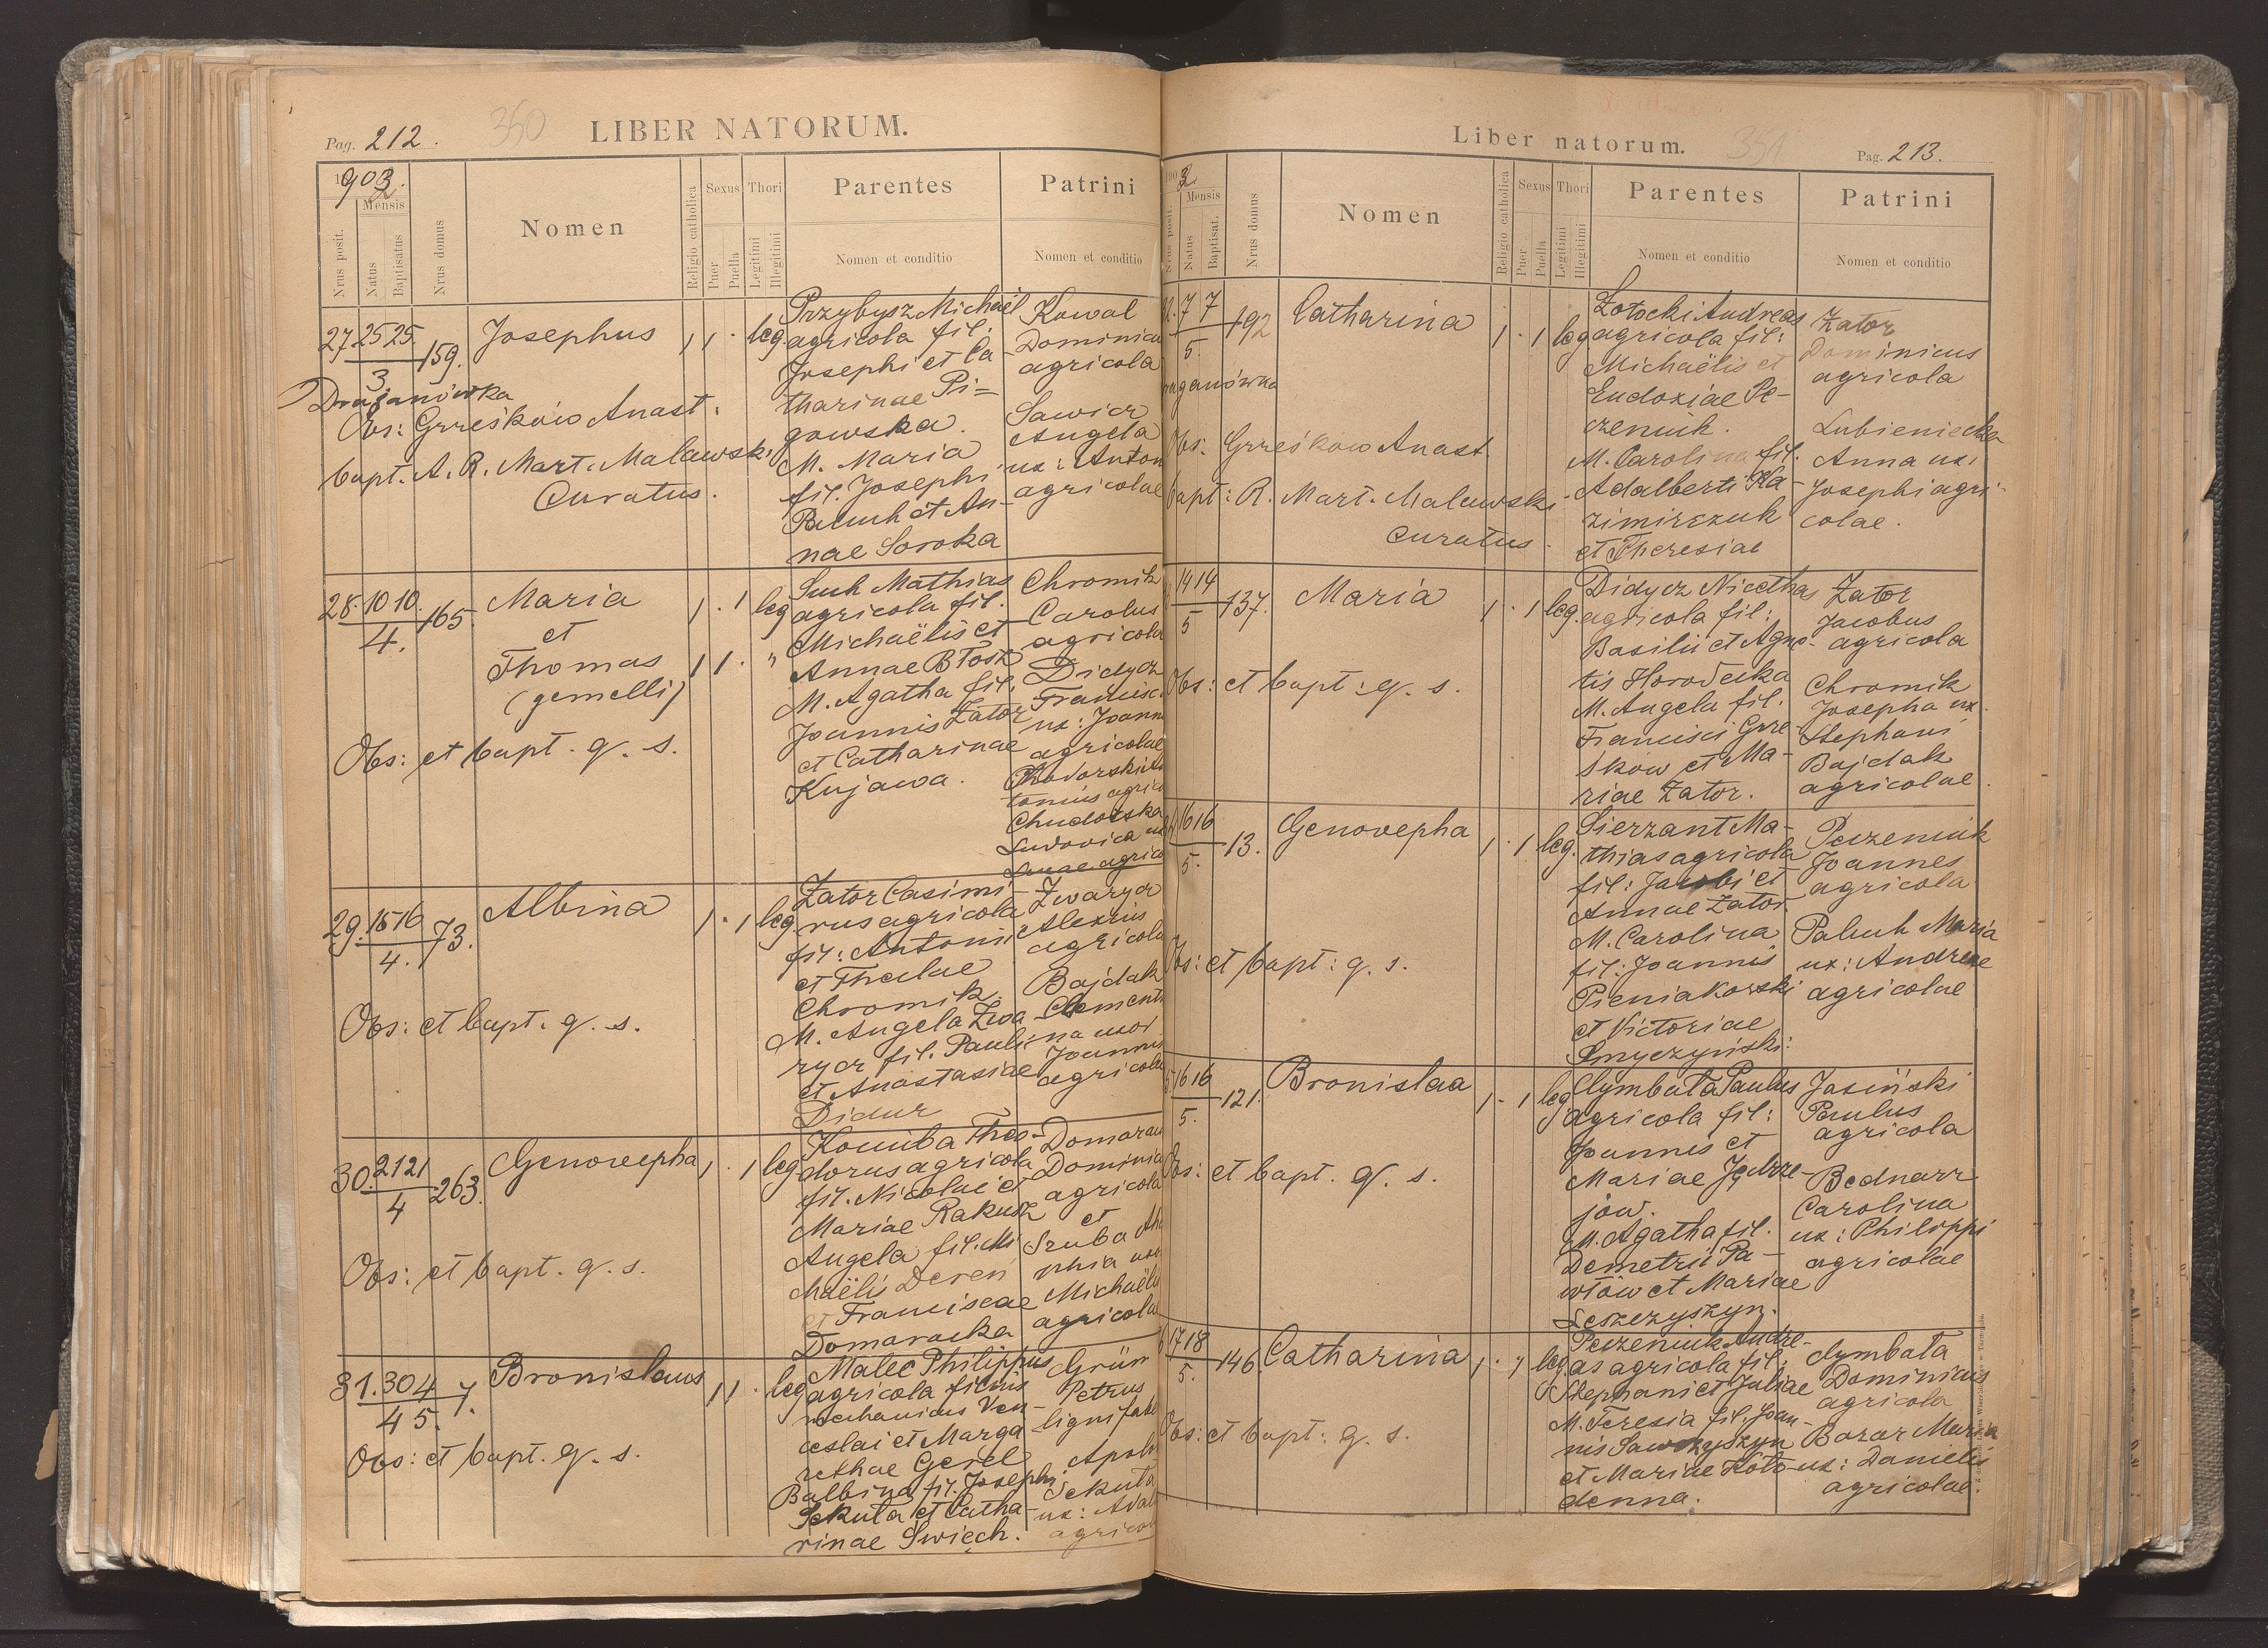 Pag. 212.
350
LIBER NATORUM.
1903.
Mensis
Nrus posit.
Natus
Baptisatus
Nrus domus
Nomen
Religio catholica
Sexus
Puer
Puella
Thori
Legitimi
Illegitimi
Parentes
Nomen et conditio
Patrini
Nomen et conditio
27 25 25.
3.
159.
Josephus
1 1 . leg
Draganówka
Obs: Grześków Anast.
bapt. A. R. Mart. Malawski
Curatus.
Przybysz Michaël
agricola fil.
Josephi et Ca-
tharinae Pi=
gowska.
M. Maria
fil. Josephi
Paluch et An-
nae Soroka
Kowal
Dominicu
agricola
Sawicz
Angela
ux: Anton
agricolae
28. 10 10.
4.
165
Maria
et
Thomas
(gemelli)
1 . 1 leg
1 1 . "
Obs: et bapt. q. s.
Such Mathias
agricola fil.
Michaëlis et
Annae Błosz
M. Agatha fil.
Joannis Zator
et Catharinae
Kujawa.
Chromik
Carolus
agricola
Didycz
Francisc
ux: Joann
agricolae
Chudorska
Ludovica ux
29. 15 16
4.
73.
Albina
1 . 1 leg
Obs: et bapt. q. s.
Zator Casimi-
rus agricola
fil: Antonii
et Theclae
Chromik
M. Angela Zwa-
rycz fil. Pauli
et Anastasiae
Didur
Zwarycz
Alexius
agricola
Bajdak
Clementi
na uxor
Joannis
agricolae
30. 21 21
4
263.
Genovepha
1 . 1 leg
Obs: et bapt. q. s.
Kouiba Theo-
dorus agricola
fil. Nicolai et
Mariae Rakusz
Angela fil. Mi
chaëlis Dereń
et Franciscae
Domaracka
Domarac
Dominic
agricola
et
Szuba
phia uxo
Michaëlis
agricolae
31. 30 4
4 5.
7.
Bronislaus
1 1 . leg
Obs: et bapt. q. s.
Malec Philippus
agricola filius
mechanicus Ven-
ceslai et Marga
rethae Gerel
Balbina fil. Josephi
Sekuła et Catha-
rinae Święch.
Grün
Petrus
lignifabe
Apolo
Sekuła
ux: Adal
agricol
Liber natorum.
351
Pag. 213.
1903
Mensis
Nrus posit.
Natus
Baptisat.
Nrus domus
Nomen
Religio catholica
Sexus
Puer
Puella
Thori
Legitimi
Illegitimi
Parentes
Nomen et conditio
Patrini
Nomen et conditio
7 7
5.
192
Catharina
1 . 1 leg
raganówka
Obs: Grześkow Anast.
bapt: R. Mart. Malawski
curatus.
Łotocki Andreas
agricola fil:
Michaëlis et
Eudoxiae Pe-
czeniuk.
M. Carolina fil.
Adalberti Ka-
zimirczuk
et Theresiae
Zator
Dominicus
agricola
Lubieniecka
Anna ux:
Josephi agri-
colae.
14 14
5
137.
Maria
1 . 1 leg.
Obs: et bapt: q. s.
Didycz Nicethas
agricola fil:
Basilii et Agne-
tis Horodecka
M. Angela fil.
Francisci Grze
skow et Ma-
riae Zator.
Zator
Jacobus
agricola
Chromik
Josepha ux.
Stephani
Bajdak
agricolae.
16 16
5.
13.
Genovepha
1 . 1 leg.
Obs: et bapt: q. s.
Sierzant Ma-
thias agricola
fil: Jacobi et
Annae Zator.
M. Carolina
fil: Joannis
Pieniakorski
et Victoriae
Smyczyński.
Peczeniuk
Joannes
agricola
Paluch Maria
ux: Andreae
agricolae
16 16
5.
121.
Bronislaa
1 . 1 leg
Obs: et bapt. q. s.
Cymbała Paulus
agricola fil:
Joannis et
Mariae Jędrze-
jów.
M. Agatha fil.
Demetrii Pa-
włów et Mariae
Leszczyszyn.
Jasiński
Paulus
agricola
Bednarz
Carolina
ux: Philippi
agricolae
17 18
5.
146
Catharina
1 . 1 leg
Obs: et bapt: q. s.
Peczeniuk Andre-
as agricola fil:
Stephani et Juliae
M. Teresia fil. Joan-
nis Sawczyszyn
et Mariae Koło-
denna.
Cymbała
Dominicus
agricola
Bozor Maria
ux: Danielis
agricolae.